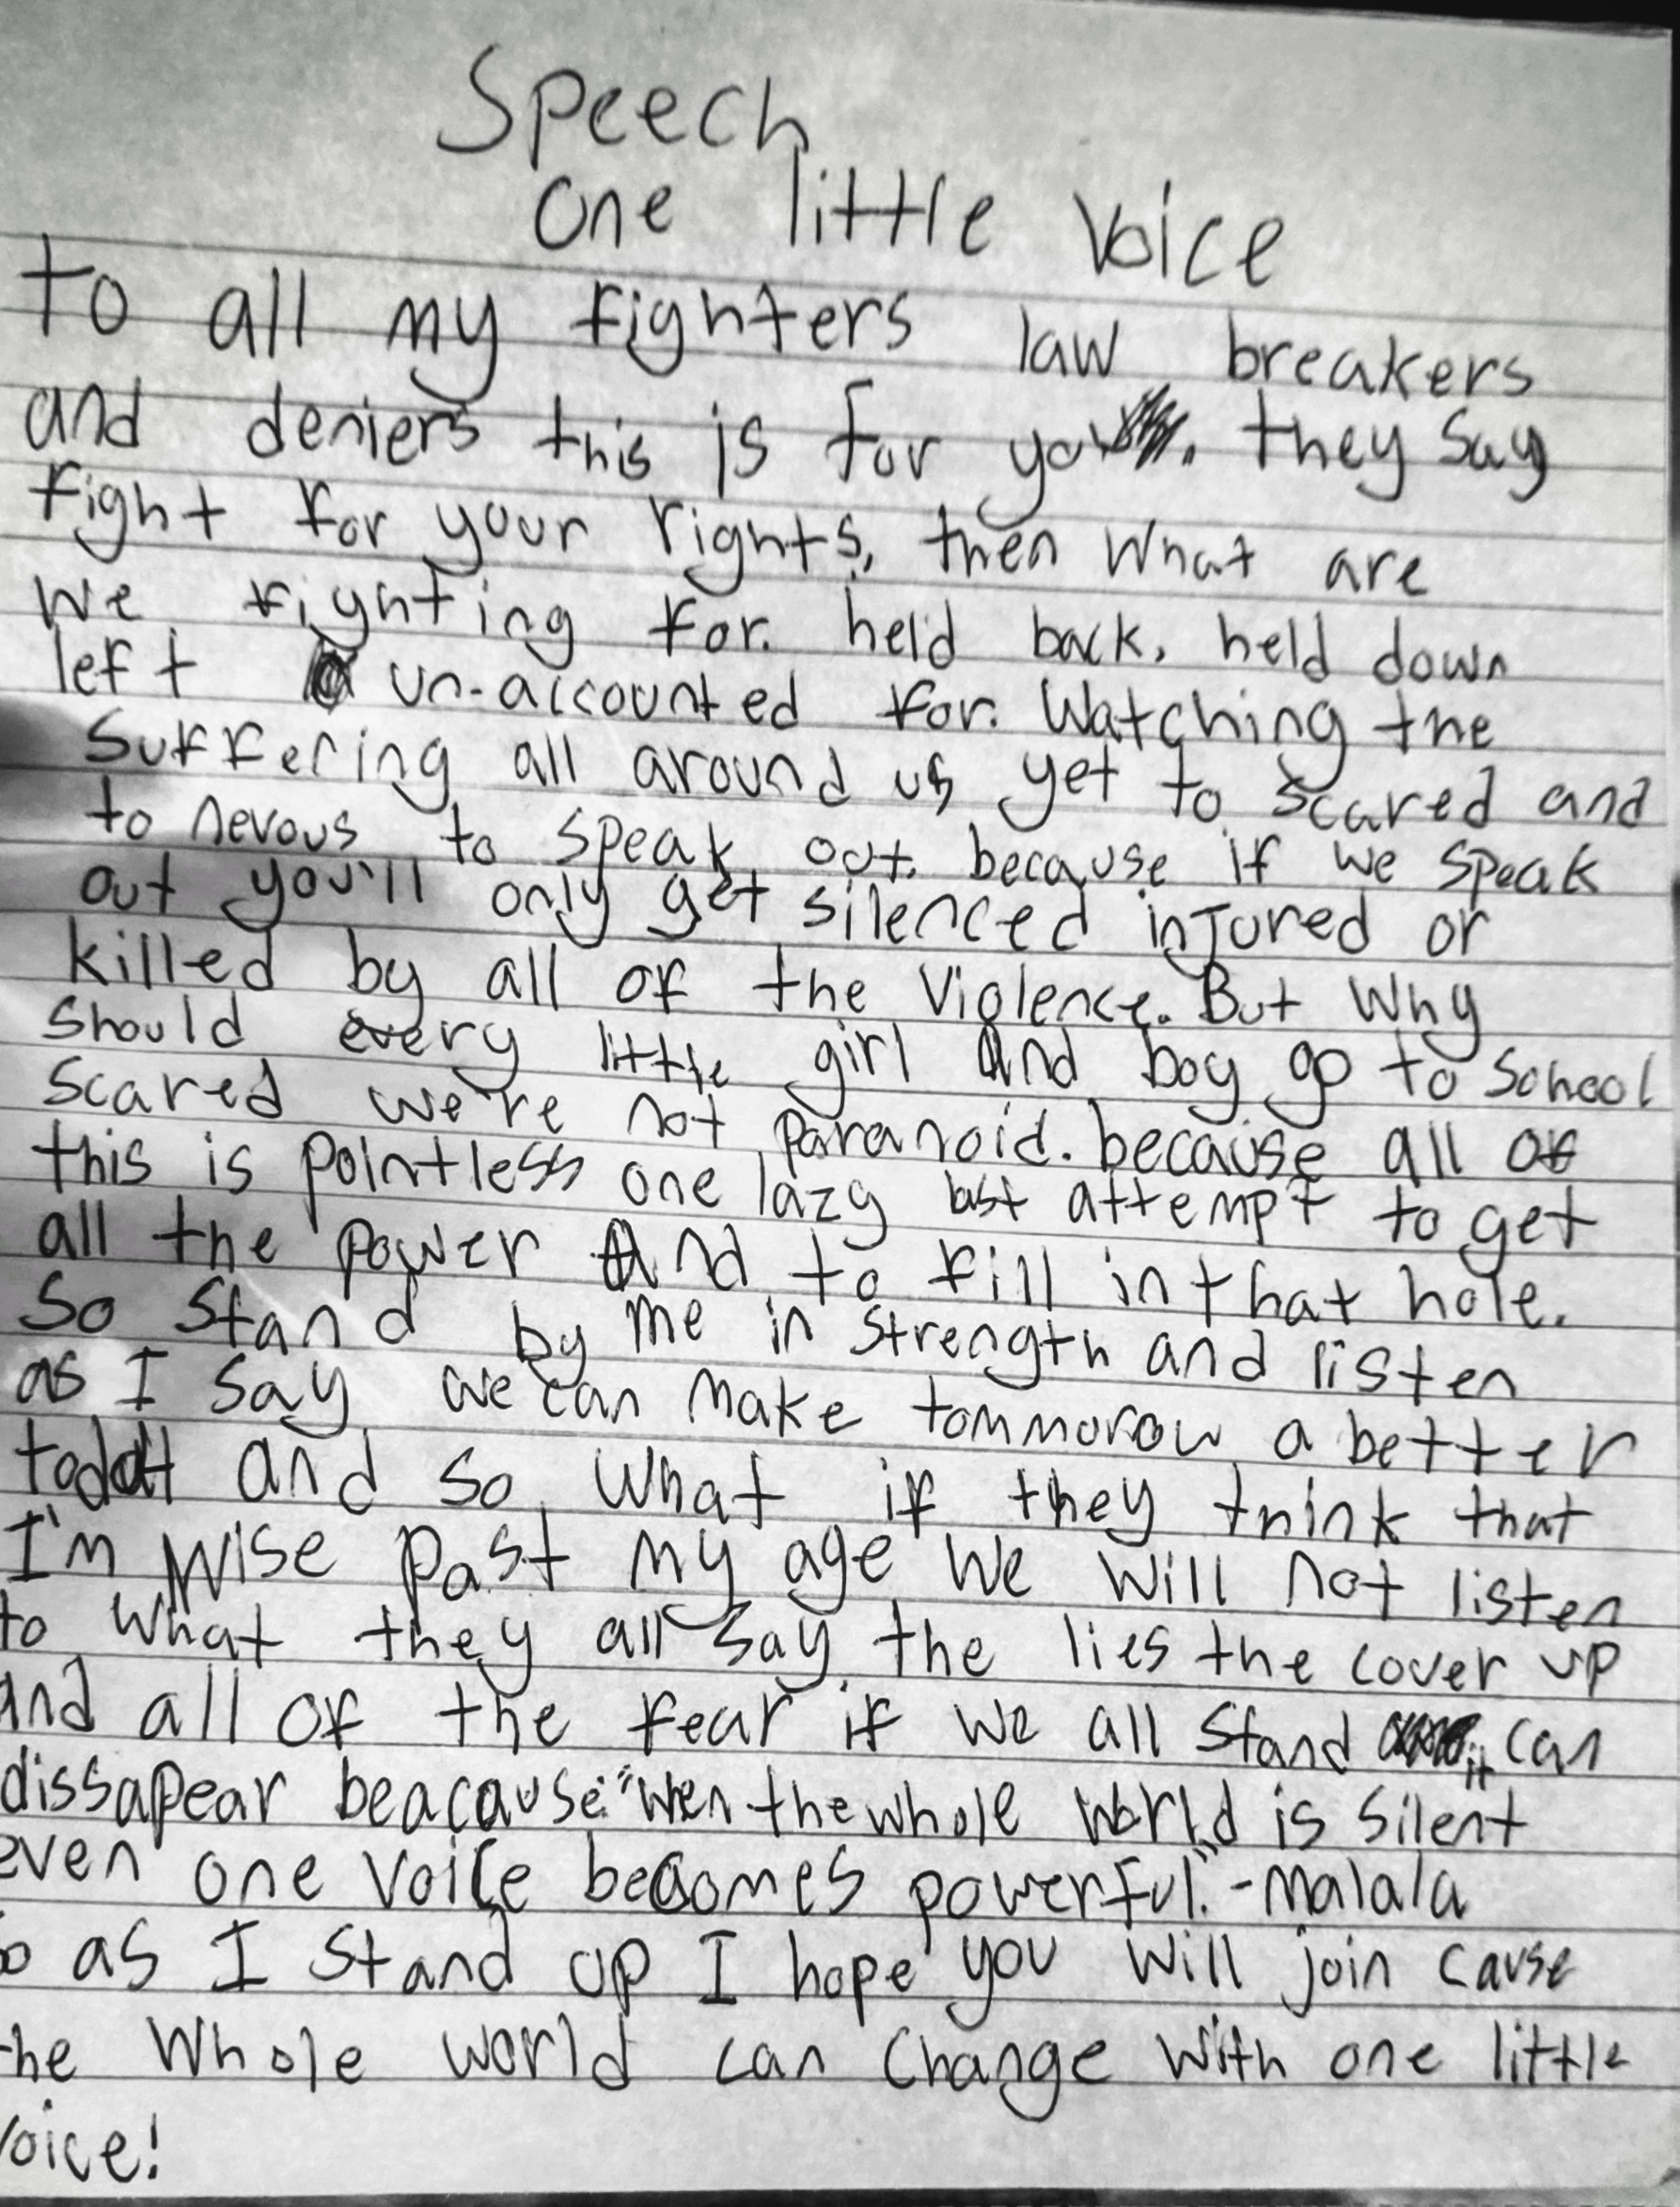 Speech
one little Voice
to all my fighters law breakers
and deniers this is for you. they say
fight for your rights, then what are
we fighting for. held back, held down
left un-accounted for. Watching the
suffering all around us yet to scared and
to nevous to speak out. because if we speak
out you'll only get silenced injured or
killed by all of the Violence. But Why
should every little girl and boy go to school
scared we're not paranoid. because all of
this is pointless one lazy last attempt to get
all the power And to fill in that hole.
So stand by me in strength and listen
as I say we can make tommorow a better
and so what if they think that
I'm wise past my age we will not listen
to what they all say. the lies the cover up
and all of the fear if we all stand it can
dissapear beacause "when the whole world is silent
even one voice becomes powerful." -Malala
as I stand up I hope you will join cause
he whole world can change with one little
voice!